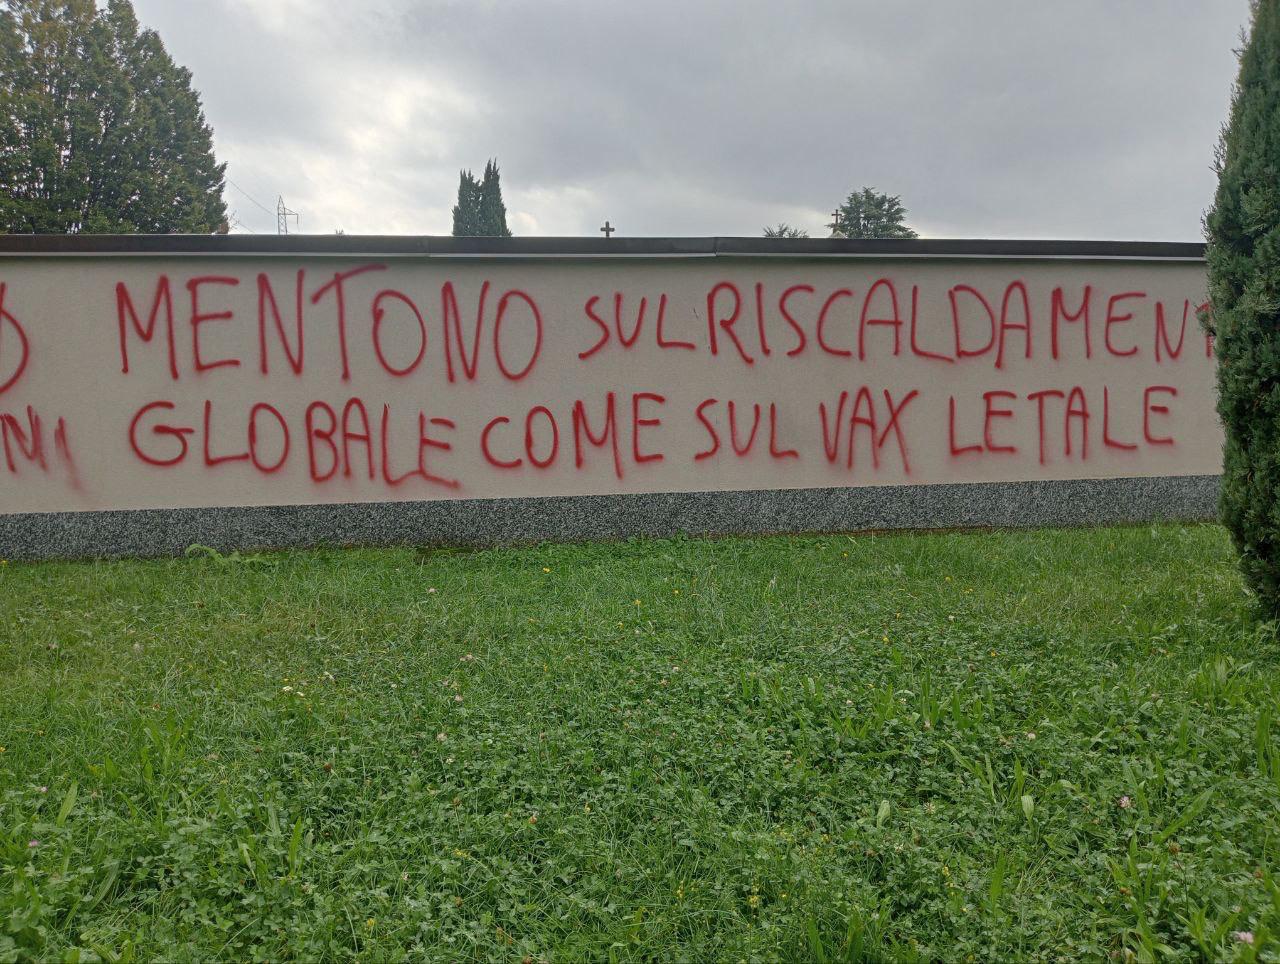 MENTONO SUL RISCALDAMENT
GLOBALE COME SUL VAX LETALE